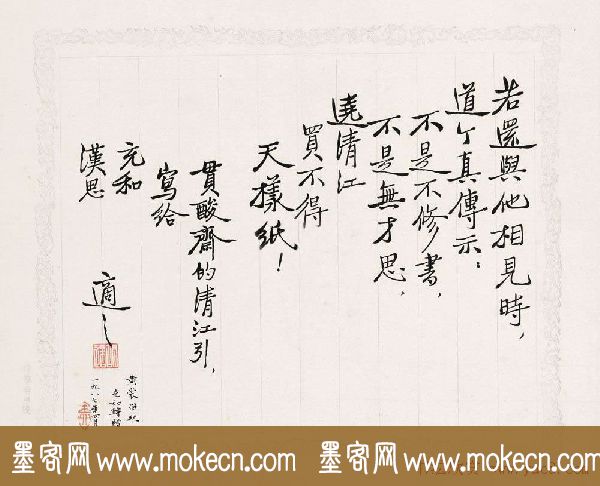 若還與他相見時，
道个真傳示：
不是不修書，
不是無才思，
遶清江
買不得
天樣紙！
貫酸齋的清江引，
寫給
充和
漢思
適之
墨客网 www.mokecn.com
墨客网 www.mokecn.com